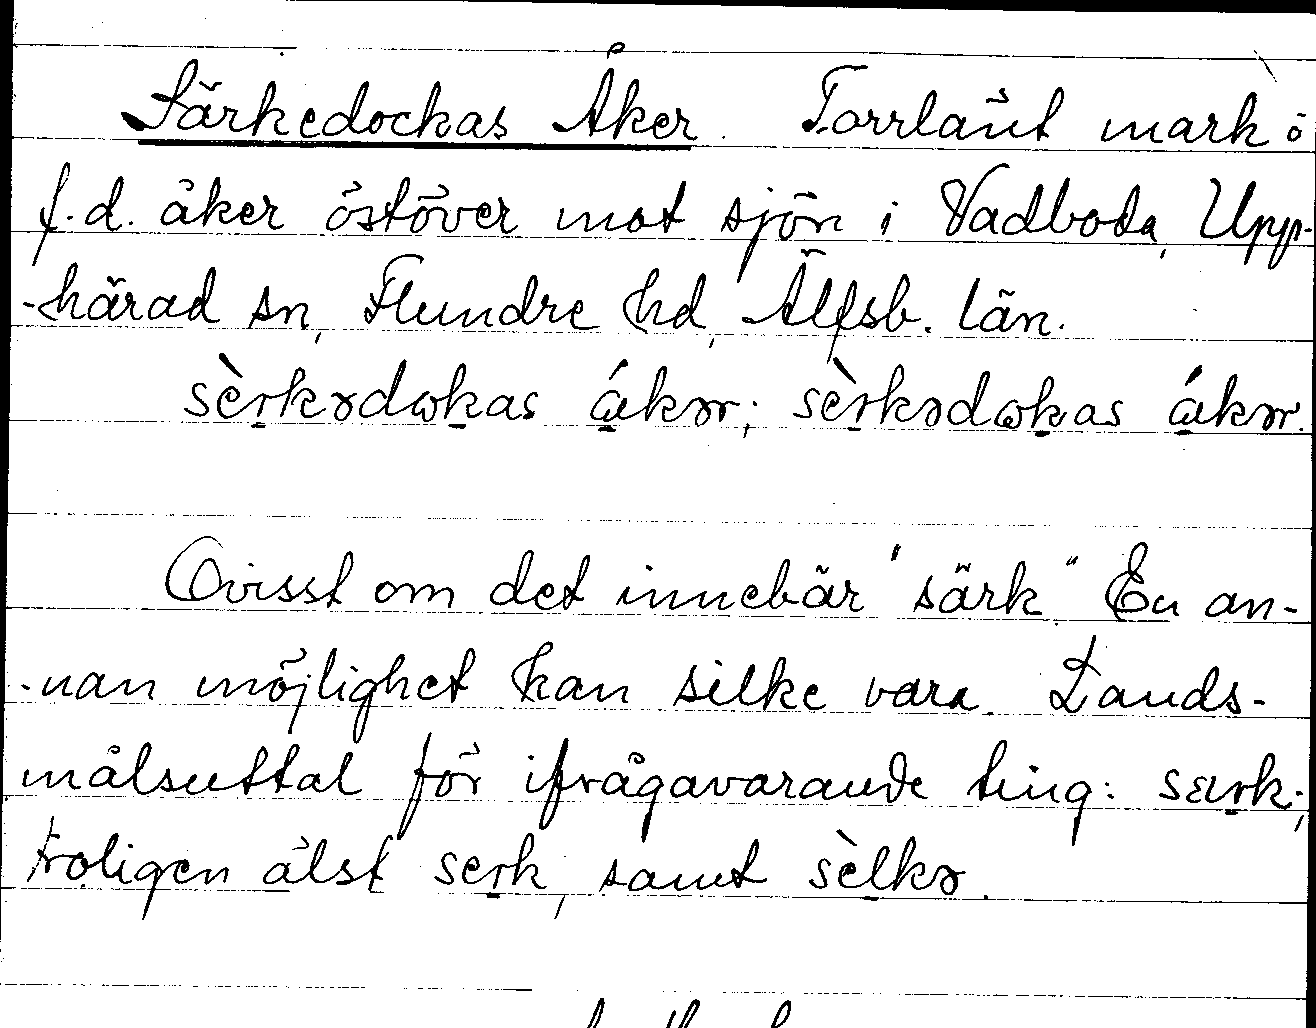 Särkedockas Åker. Torrlañt mark ö
f.d. åker östöver mot sjön i Vadboda, Upp-
-härad sn, Flundre hd, Älfsb. län.
sè̱rkədωk̲as á̱kər; sè̱rkədωk̲as á̱kər.
Ovisst om det innebär "särk". En an-
-nan möjlighet kan silke vara. Lands-
målsuttal för ifrågavarande ting: særk;
troligen älst serk, samt sèlkə.